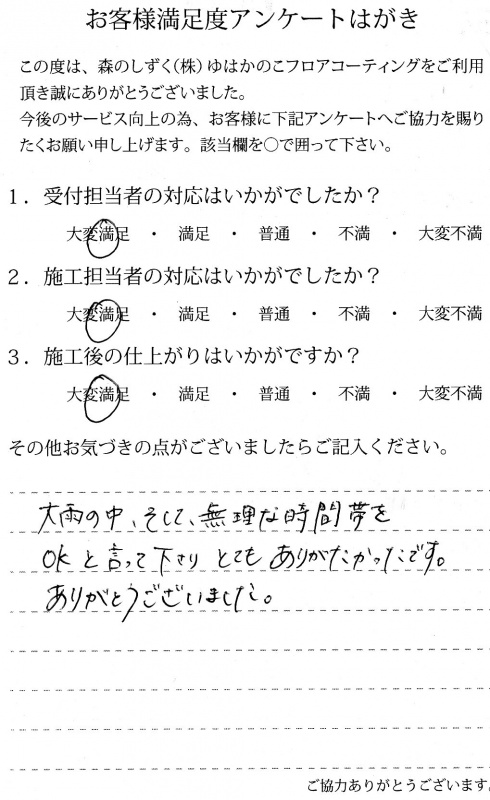 お客様満足度アンケートはがき
この度は、森のしずく（株）ゆはかのこフロアコーティングをご利用
頂き誠にありがとうございました。
今後のサービス向上の為、お客様に下記アンケートへご協力を賜り
たくお願い申し上げます。該当欄を○で囲って下さい。
1．受付担当者の対応はいかがでしたか？
大変満足 ・ 満足 ・ 普通 ・ 不満 ・ 大変不満
2．施工担当者の対応はいかがでしたか？
大変満足 ・ 満足 ・ 普通 ・ 不満 ・ 大変不満
3．施工後の仕上がりはいかがですか？
大変満足 ・ 満足 ・ 普通 ・ 不満 ・ 大変不満
その他お気づきの点がございましたらご記入ください。
大雨の中、そして、無理な時間帯を
OKと言って下さりとてもありがたかったです。
ありがとうございました。
ご協力ありがとうございます。